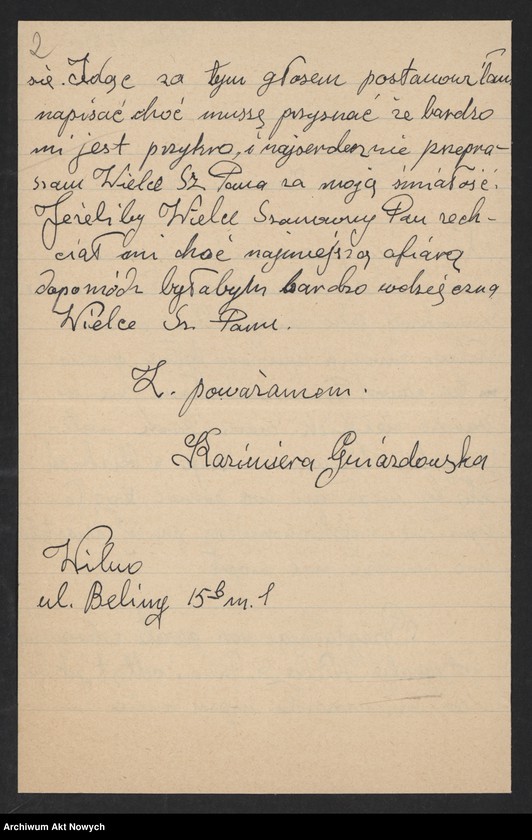 2
się. Idąc za tym głosem postanowiłam
napisać choć muszę przyznać że bardzo
mi jest przykro, i najserdeczniej przepra-
szam Wielce Sz Pana za moją śmiałość.
Jeżeliby Wielce Szanowny Pan zech-
ciał mi choć najmniejszą ofiarą
dopomódz byłabym bardzo wdzięczna
Wielce Sz Panu.
Z. poważaniem.
Kazimiera Gwiazdowska
Wilno
ul. Beliny 15 m. 1
Archiwum Akt Nowych